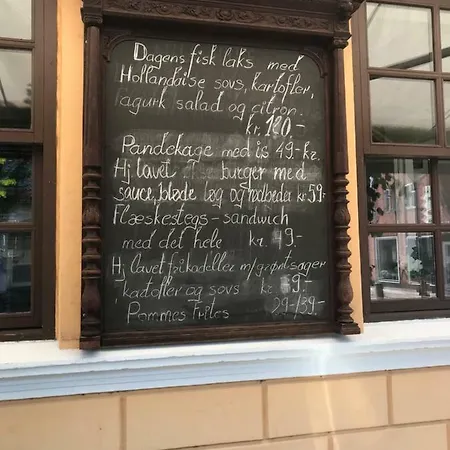 Dagens fisk laks med
Hollandaise sovs, kartofler,
agurk salad og citron.
kr. 120.-
Pandekage med is 49.-kr.
Hjlavet burger med
sauce, bløde løg og rødbeda kr 59.-
Flæskestegs-sandwich
med det hele kr. 49.-
Hjlavet frikadeller m/grøntsager
kartofler og sovs kr 9.-
Pommes Frites 29-/39.-